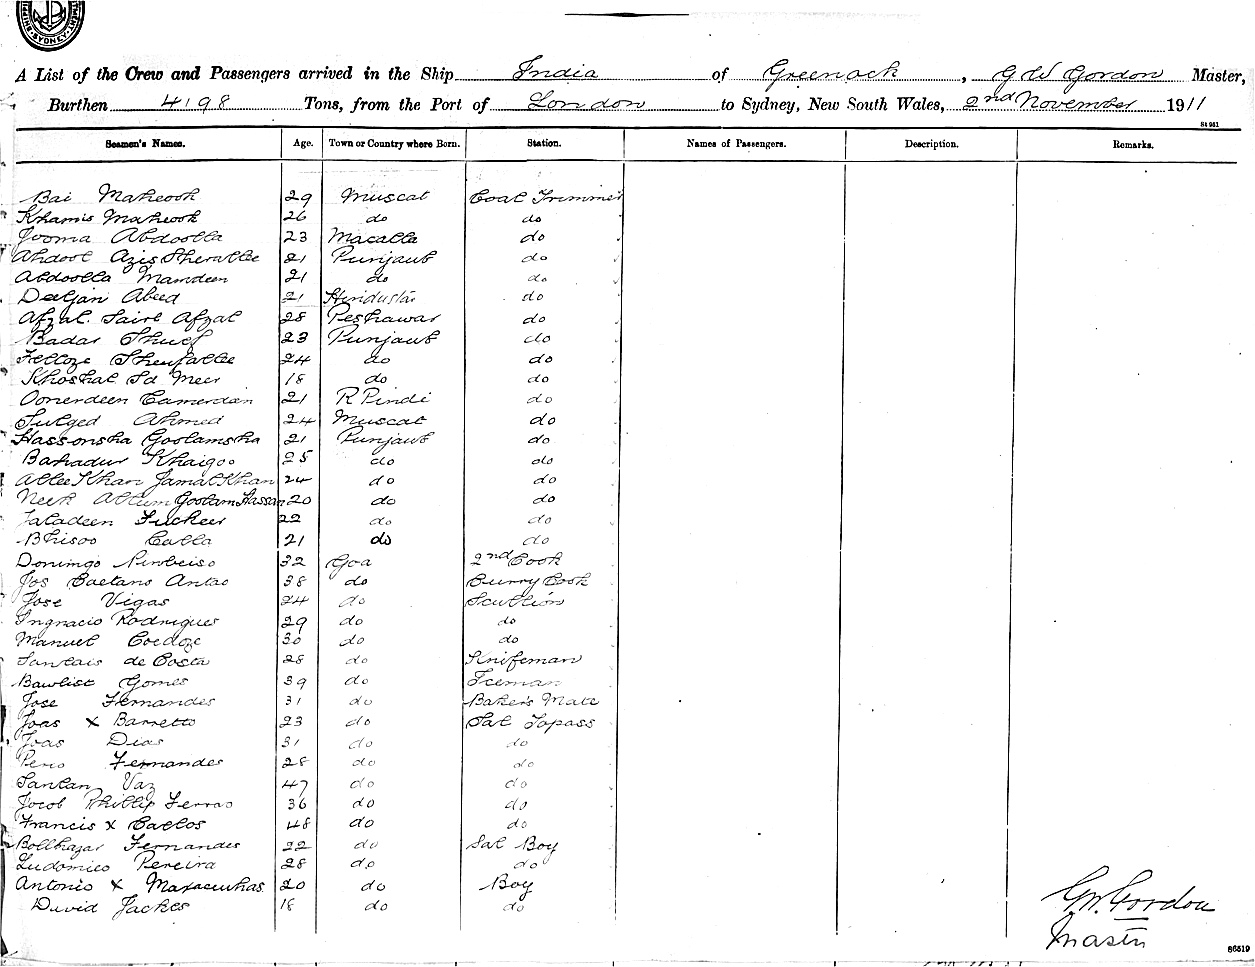 SYDNEY
A List of the Crew and Passengers arrived in the Ship India of Greenock, G W Gordon Master,
Burthen 4198 Tons, from the Port of London to Sydney, New South Wales, 2nd November 1911
St 981
Seamen's Names. Age. Town or Country where Born. Station. Names of Passengers. Description. Remarks.
Bai Mahcook 29 Muscat Coal Trimmer
Khamis Mahcook 26 do do
Jooma Abdoolla 23 Macalla do
Ahdool Azis Sheralle 21 Punjaub do
Abdoolla Mamdeen 21 do do
Daljan Abed 21 Hindustan do
Afzal Saire Afzal 28 Peshawar do
Badar Shuef 23 Punjaub do
24 do do
Khoshal Sd Meer 18 do do
Oomerdeen Camerdan 21 R Pindi do
Ahmed 24 Muscat do
Hassonsha Goolamsha 21 Punjaub do
Bahadur Khaigoo 25 do do
Allee Khan Jamal Khan 24 do do
Neek Allum Goolam Hassan 20 do do
Jaladeen Fuckeer 22 do do
Bhisoo Calla 21 do do
Domingo 32 Goa 2nd Cook
Jos Caetano Antao 38 do Curry Cook
Jose Vigas 24 do Scullion
Ingnacio Rodrigues 29 do do
Manuel 30 do do
de Costa 28 do Knifeman
Gomes 39 do Iceman
Jose Fernandes 31 do Baker's Mate
Joas X Barretto 23 do Sal Topass
Joas Dias 31 do do
Pero Fernandes 28 do do
Santan Vaz 47 do do
Jocob Phillip Ferrao 36 do do
Francis X Callos 48 do do
Fernandes 22 do Sal Boy
Ludomico Pereira 28 do do
Antonio X 20 do Boy
David Jackes 18 do do
G.W. Gordon
Master
86519